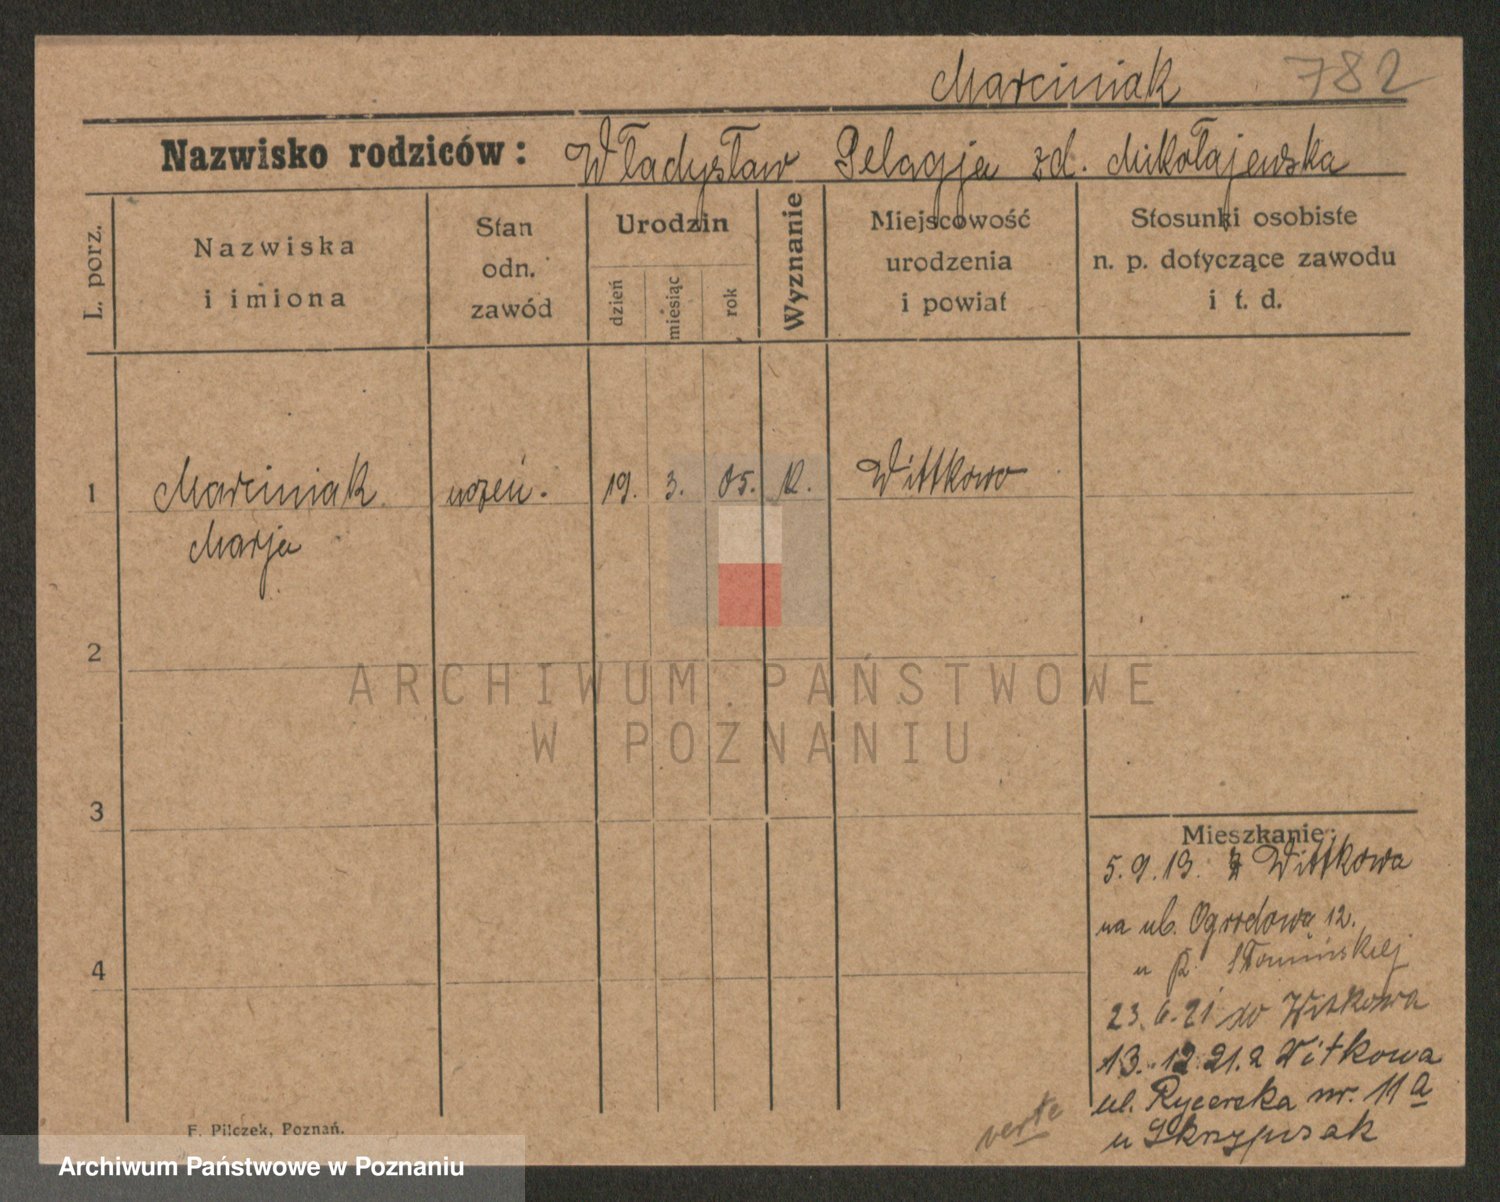 Marciniak 782
Nazwisko rodziców: Władysław Pelagja zd. Mikołajewska
L. porz.
Nazwiska
i imiona
Stan
odn.
zawód
Urodzin
dzień
miesiąc
rok
Wyznanie
Miejscowość
urodzenia
i powiat
Stosunki osobiste
n. p. dotyczące zawodu
i t. d.
1 Marciniak uczeń. 19. 3. 05. K. Wittkowo
Marja
2
ARCHIWUM PAŃSTWOWE
W POZNANIU
3
Mieszkanie:
5.9.19. z Wittkowa
na ul. Ogrodowa 12.
u p. Słomińskiej
4
23.6.21 do Witkowa
13.12.21. z Witkowa
ul. Rycerska nr. 11a
u Skrzypczak
verte
F. Pilczek, Poznań.
Archiwum Państwowe w Poznaniu